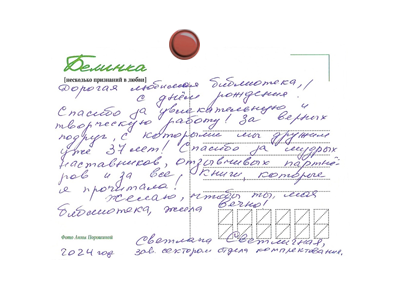 Белинка
[несколько признаний в любви]
Дорогая любимая библиотека,
с днём рождения!
Спасибо за увлекательную и
творческую работу! За верных
подруг, с которыми мы дружим
уже 37 лет! Спасибо за мудрых
наставников, отзывчивых партнё-
ров и за все книги, которые
я прочитала!
Желаю, чтобы ты, моя
библиотека, жила вечно!
Фото Анны
Светлана Светличная,
2024 год зав. сектором отдела комплектования.